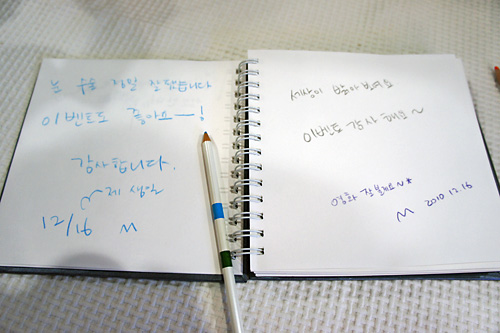 눈 수술 정말 잘 됐습니다
이벤트도 좋아요~!
감사합니다.
제 생각
12/16 M
세상이 밝아 보여요
이벤트 감사해요~
영화 잘볼께요
M 2010.12.16